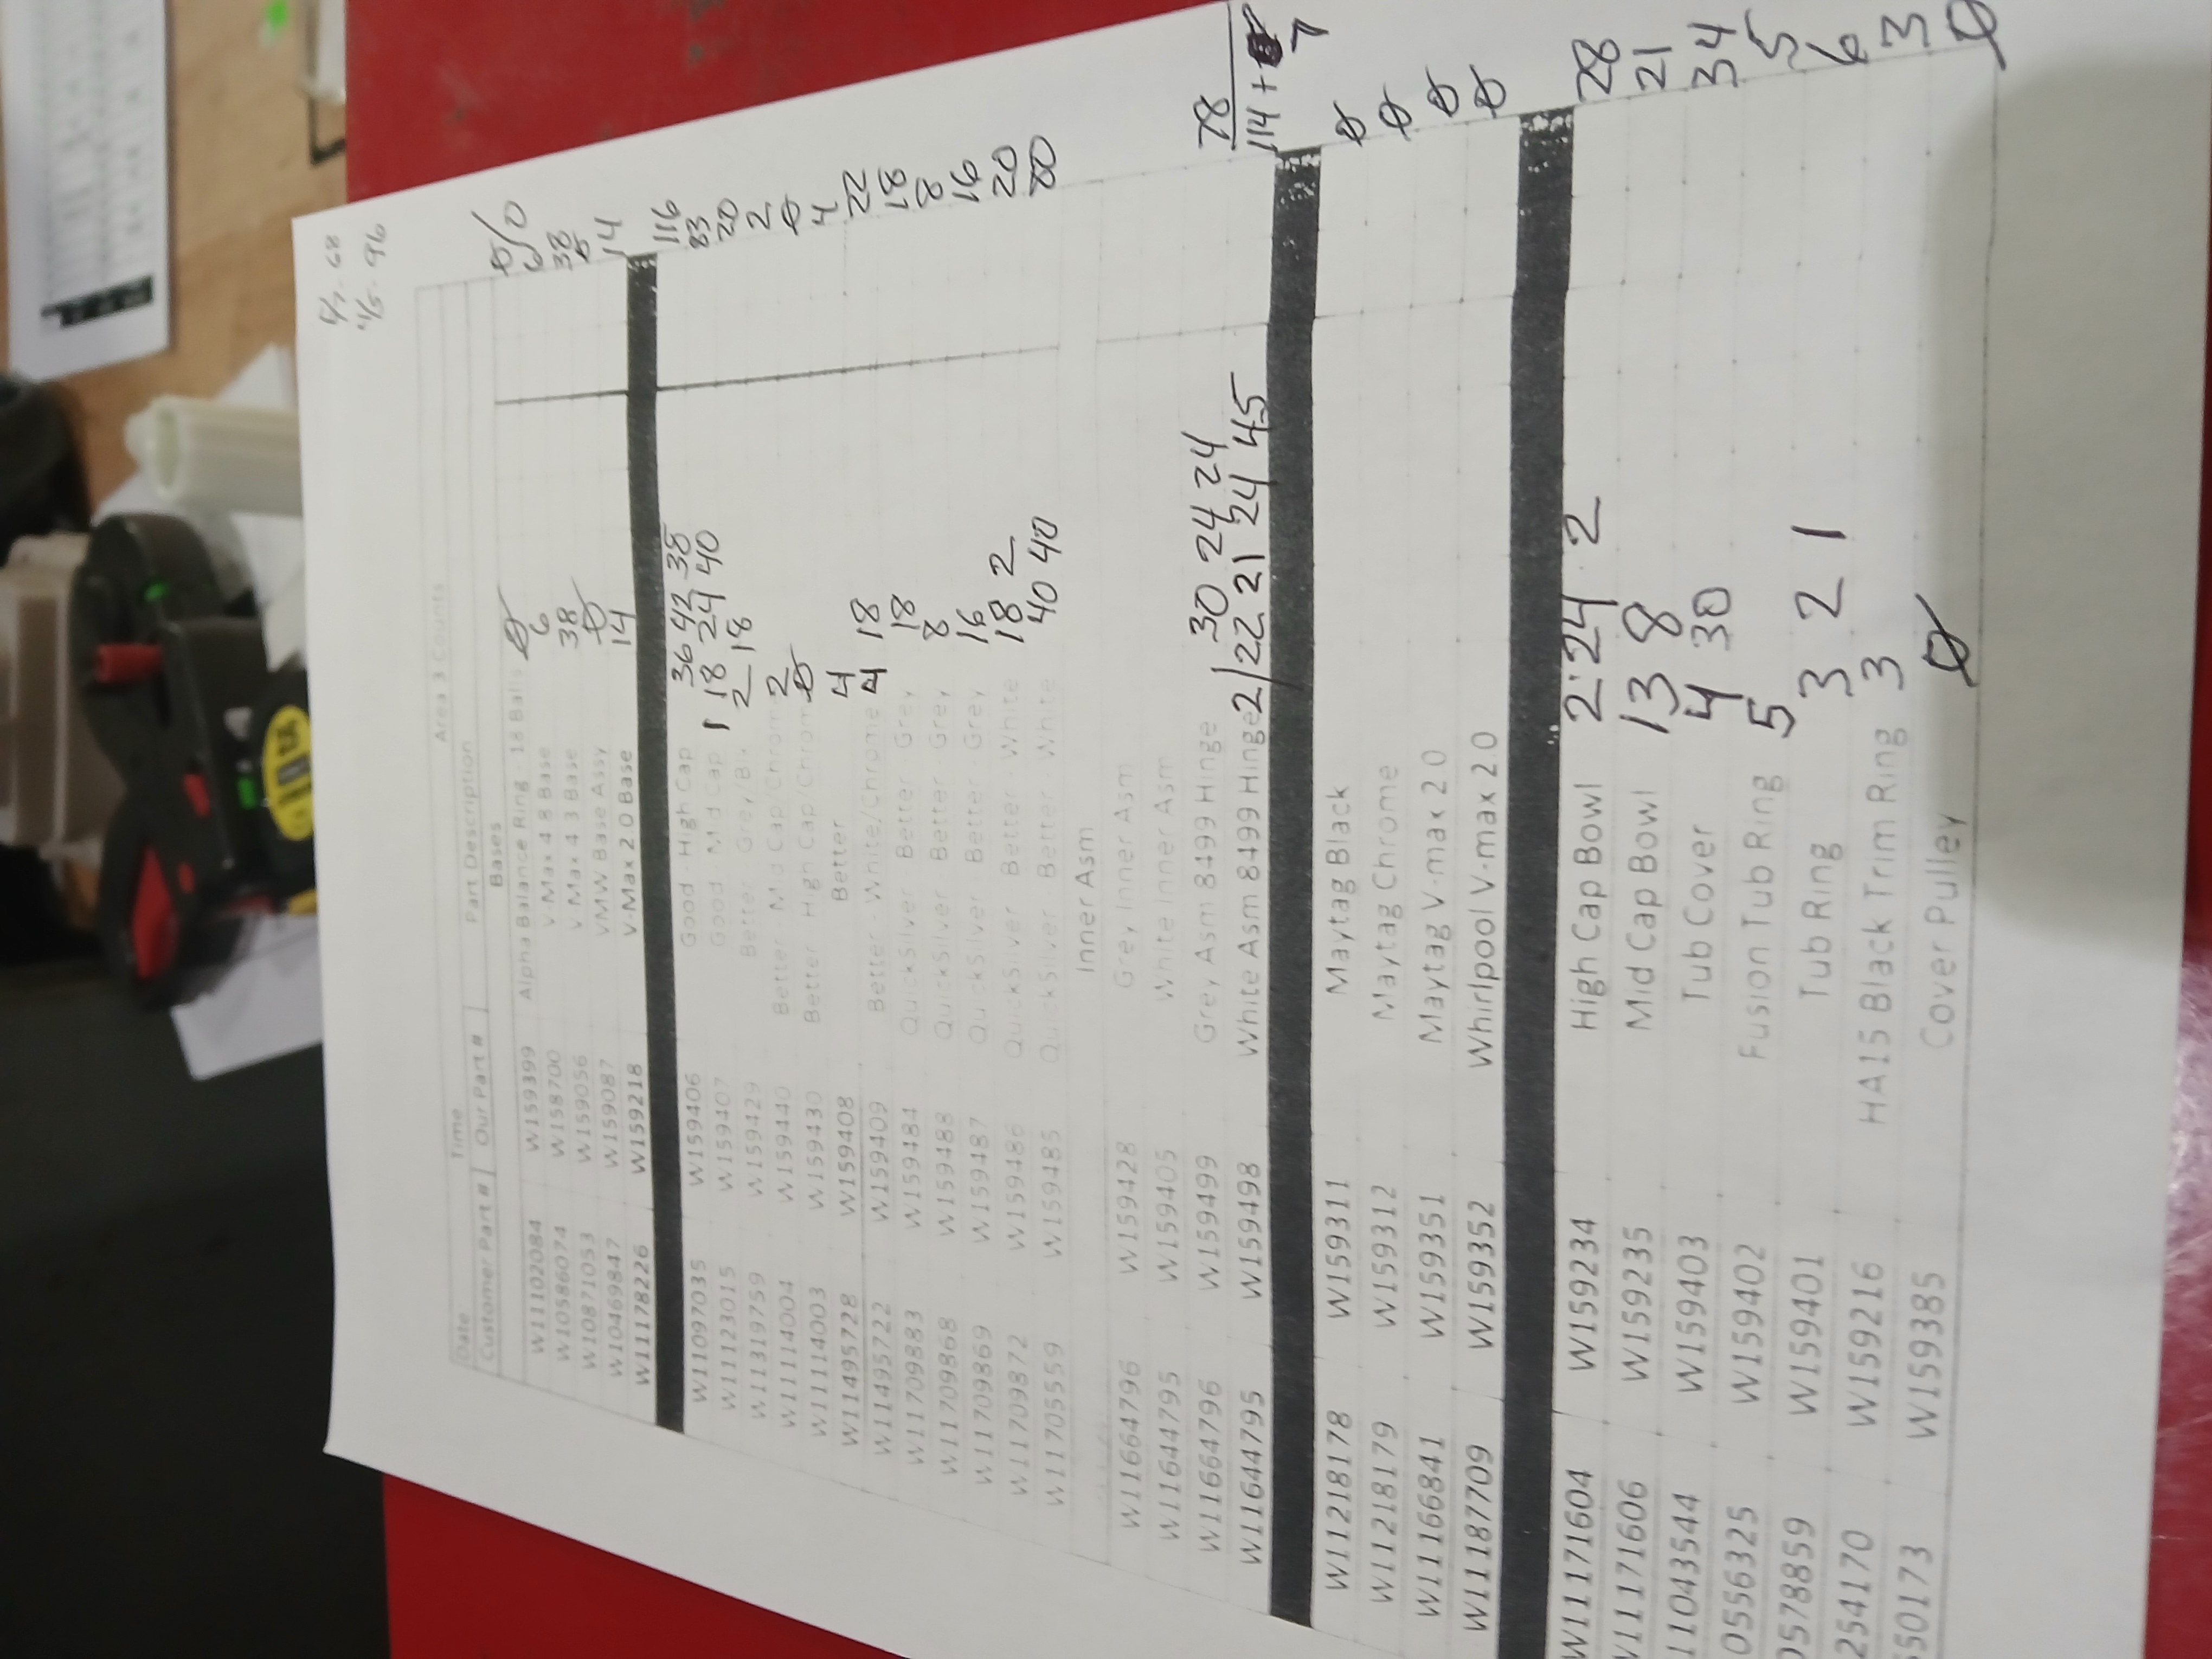 4/5- 96
Area 3 Counts
Date Time
Customer Part # Our Part # Part Description
Bases
W11102084 W159399 Alpha Balance Ring - 18 Balls ∅ ∅/0
W10586074 W158700 V-Max 4 8 Base 6 6
W10871053 W159056 V-Max 4 3 Base 38 38
W10469847 W159087 VMW Base Assy ∅ ∅
W11178226 W159218 V-Max 2.0 Base 14 14
W11097035 W159406 Good - High Cap 36 42 38 116
W11123015 W159407 Good - Mid Cap 1 18 24 40 83
W11319759 W159429 Better - Grey/B. 2 18 20
W11114004 W159440 Better - Mid Cap/Chrome 2 2
W11114003 W159430 Better - High Cap/Chrome ∅ ∅
W11495728 W159408 Better 4 4
W11495722 W159409 Better - White/Chrome 4 18 22
W11709883 W159484 QuickSilver - Better - Grey 18 18
W11709868 W159488 QuickSilver - Better - Grey 8 8
W11709869 W159487 QuickSilver - Better - Grey 16 16
W11709872 W159486 QuickSilver - Better - White 18 2 20
W11705559 W159485 QuickSilver - Better - White 40 40 80
Inner Asm
W11664796 W159428 Grey Inner Asm
W11644795 W159405 White Inner Asm
W11664796 W159499 Grey Asm 8499 Hinge 30 24 24 78
W11644795 W159498 White Asm 8499 Hinge 2/22 21 24 45 114 + 7
W11218178 W159311 Maytag Black ∅
W11218179 W159312 Maytag Chrome ∅
W11166841 W159351 Maytag V-max 2 0 ∅
W11187709 W159352 Whirlpool V-max 2 0 ∅
W11171604 W159234 High Cap Bowl 2 24 2 28
V11171606 W159235 Mid Cap Bowl 13 8 21
11043544 W159403 Tub Cover 4 30 34
0556325 W159402 Fusion Tub Ring 5 5
0578859 W159401 Tub Ring 3 2 1 6
254170 W159216 HA15 Black Trim Ring 3 3
50173 W159385 Cover Pulley ∅ ∅